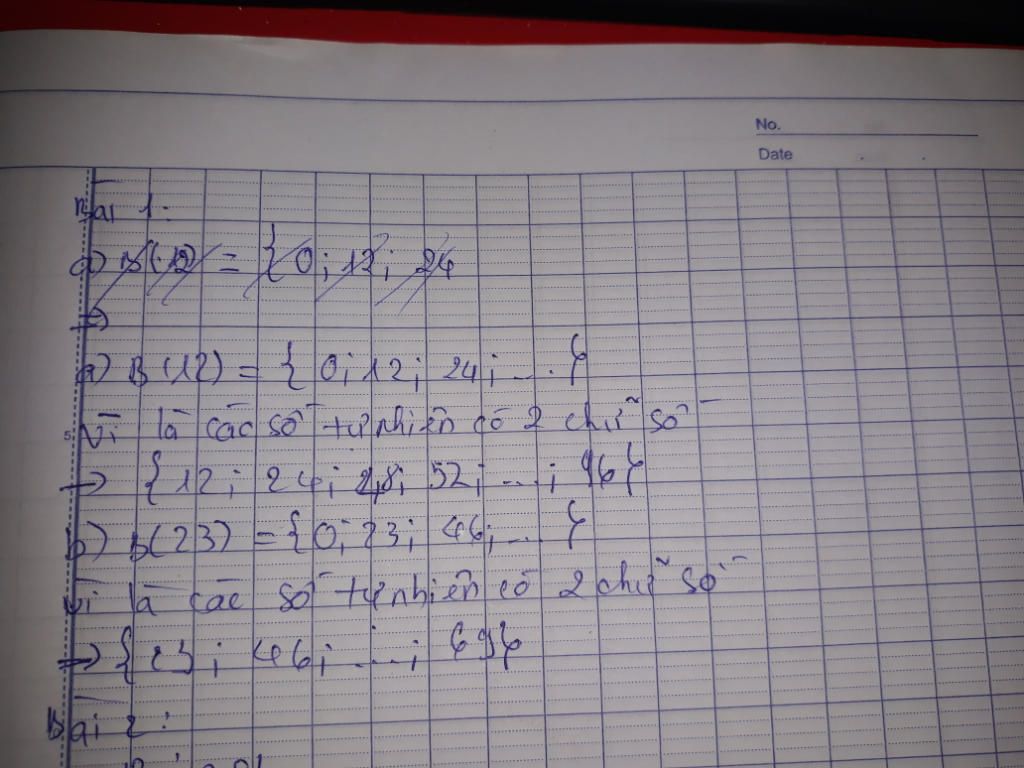 No.
Date
Bài 1:
a) B(12) = { 0; 12; 24
→
a) B(12) = { 0; 12; 24; ... }
Vì là các số tự nhiên có 2 chữ số
→ { 12; 24; 28; 52; ...; 96 }
b) B(23) = { 0; 23; 46; ... }
Vì là các số tự nhiên có 2 chữ số
→ { 23; 46; ...; 69 }
Bài 2: